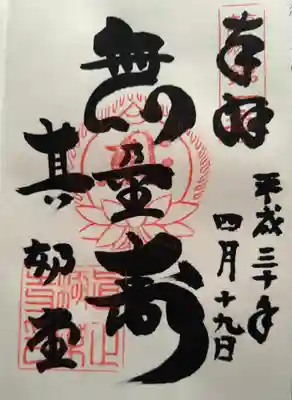 奉拝
平成三十年
四月十九日
無量寿
其
堂